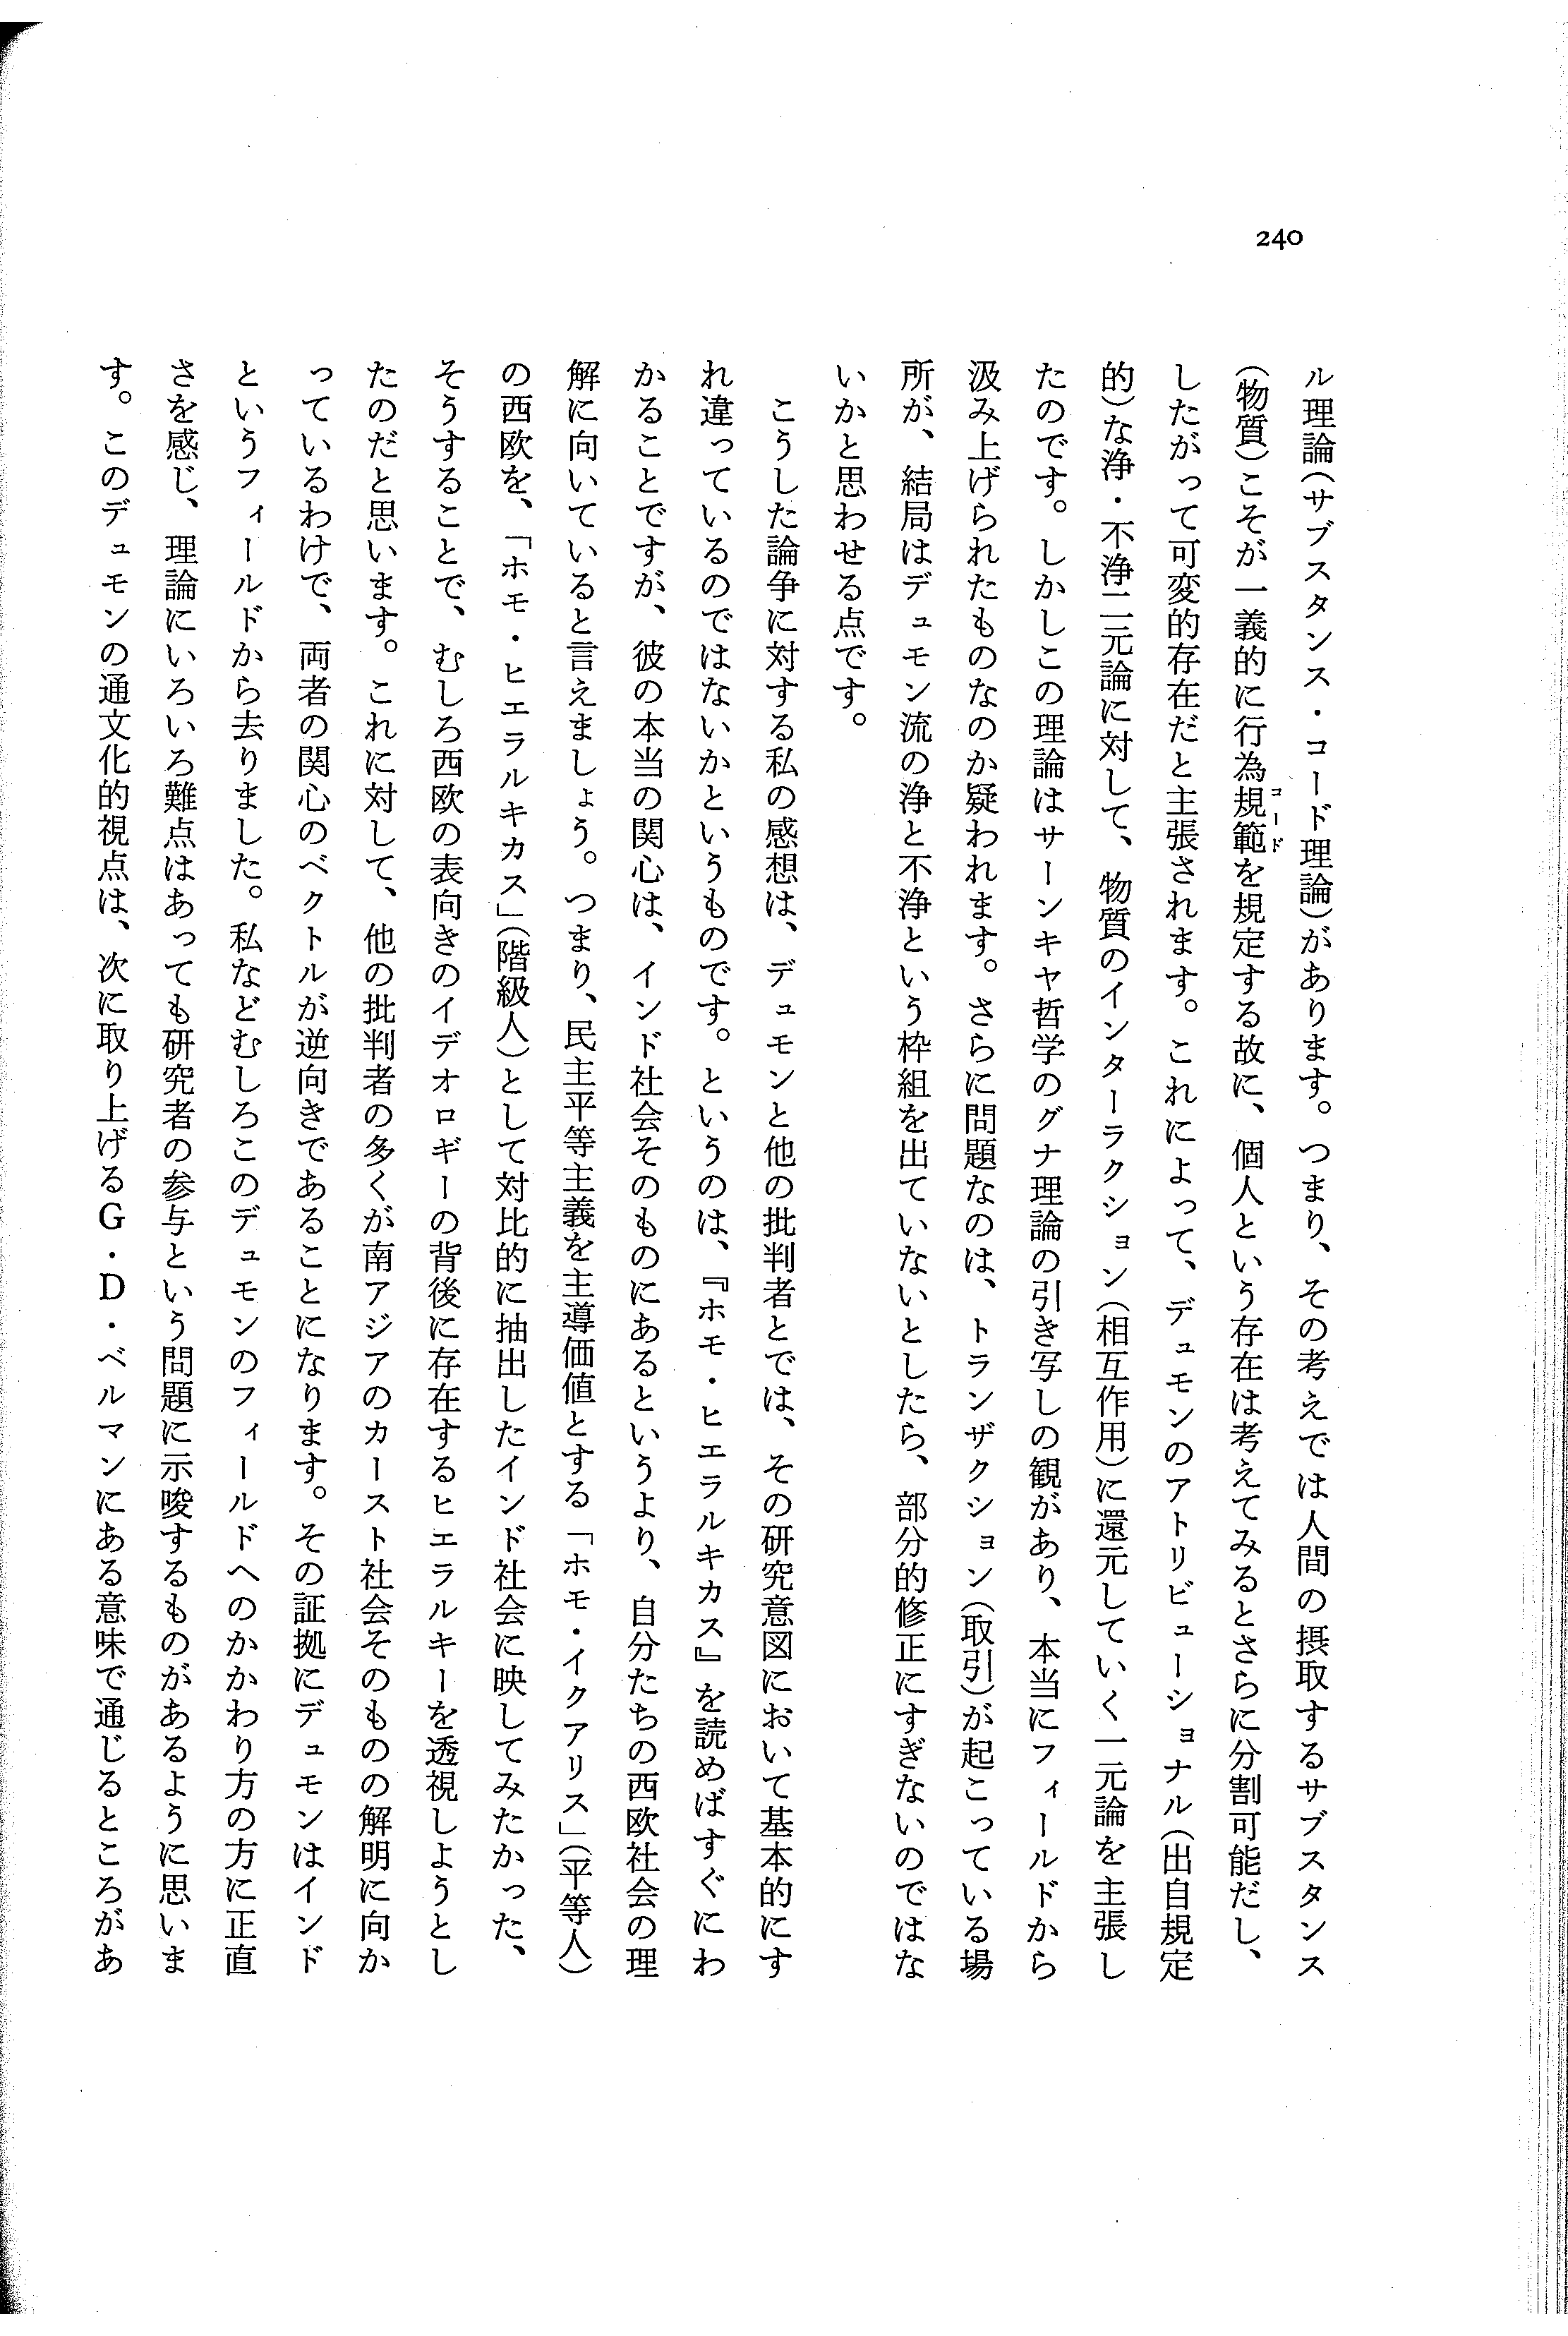 240
ル理論(サブスタンス・コード理論)があります。つまり、その考えでは人間の摂取するサブスタンス
(物質)こそが一義的に行為規範を規定する故に、個人という存在は考えてみるとさらに分割可能だし、
コード
したがって可変的存在だと主張されます。これによって、デュモンのアトリビューショナル(出自規定
的)な浄・不浄二元論に対して、物質のインターラクション(相互作用)に還元していく一元論を主張し
たのです。しかしこの理論はサーンキヤ哲学のグナ理論の引き写しの観があり、本当にフィールドから
汲み上げられたものなのか疑われます。さらに問題なのは、トランザクション(取引)が起こっている場
所が、結局はデュモン流の浄と不浄という枠組を出ていないとしたら、部分的修正にすぎないのではな
いかと思わせる点です。
こうした論争に対する私の感想は、デュモンと他の批判者とでは、その研究意図において基本的にす
れ違っているのではないかというものです。というのは、『ホモ・ヒエラルキカス』を読めばすぐにわ
かることですが、彼の本当の関心は、インド社会そのものにあるというより、自分たちの西欧社会の理
解に向いていると言えましょう。つまり、民主平等主義を主導価値とする「ホモ・イクアリス」(平等人)
の西欧を、「ホモ・ヒエラルキカス」(階級人)として対比的に抽出したインド社会に映してみたかった、
そうすることで、むしろ西欧の表向きのイデオロギーの背後に存在するヒエラルキーを透視しようとし
たのだと思います。これに対して、他の批判者の多くが南アジアのカースト社会そのものの解明に向か
っているわけで、両者の関心のベクトルが逆向きであることになります。その証拠にデュモンはインド
というフィールドから去りました。私などむしろこのデュモンのフィールドへのかかわり方の方に正直
さを感じ、理論にいろいろ難点はあっても研究者の参与という問題に示唆するものがあるように思いま
す。このデュモンの通文化的視点は、次に取り上げるG・D・ベルマンにある意味で通じるところがあ